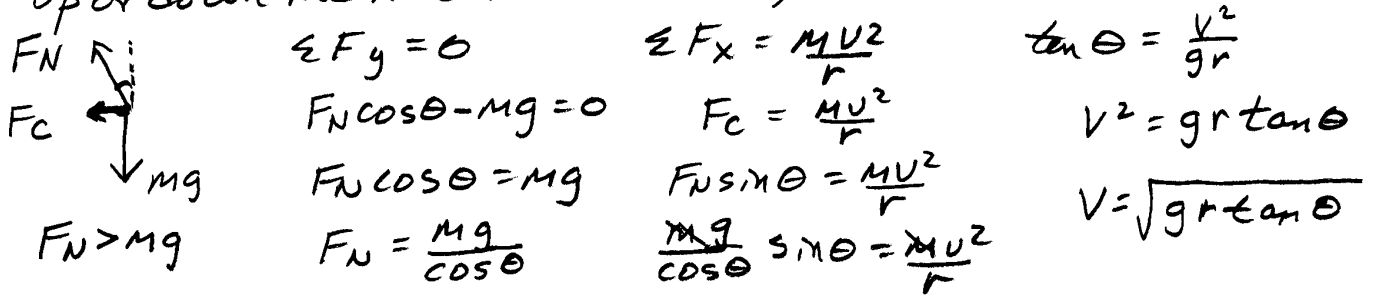 up or down the
FN
Fc
mg
FN > mg
ΣFy = 0
FN cosθ - mg = 0
FN cosθ = mg
FN = mg/cosθ
ΣFx = mv2/r
Fc = mv²/r
FN sinθ = mv²/r
mg/cosθ sinθ = mv²/r
tan θ = v²/gr
v² = gr tan θ
v = √gr tan θ